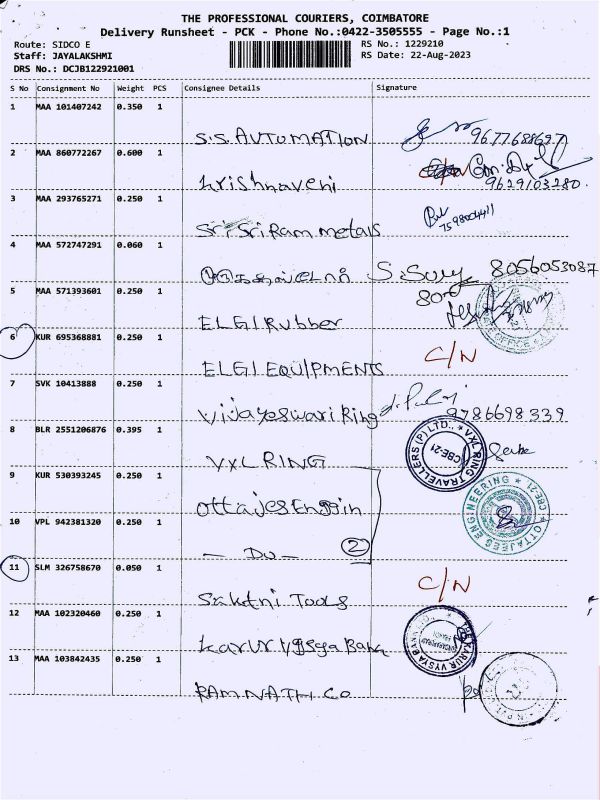 THE PROFESSIONAL COURIERS, COIMBATORE
Delivery Runsheet - PCK - Phone No.:0422-3505555 - Page No.:1
Route: SIDCO E RS No.: 1229210
Staff: JAYALAKSHMI RS Date: 22-Aug-2023
DRS No.: DCJB122921001
S No Consignment No Weight PCS Consignee Details Signature
1 MAA 101407242 0.350 1
S.S. AUTOMATION 9677688697
2 MAA 860772267 0.600 1
krishnaveni 9629103280.
3 MAA 293765271 0.250 1
Sri Sri Ram metals 7598004411
4 MAA 572747291 0.060 1
S. Sury 8056053087
5 MAA 571393601 0.250 1 80
ELGI Rubber
6 KUR 695368881 0.250 1
ELGI EQUIPMENTS C/N
7 SVK 10413888 0.250 1
Vijayeswari Ring 9786698339
8 BLR 2551206876 0.395 1
VXL RING
VXL RING TRAVELLERS (P) LTD., CBE-21
9 KUR 530393245 0.250 1
Ottajes Engin
OTTAJEES ENGINEERING CBE-21
10 VPL 942381320 0.250 1
— Do — 2
11 SLM 326758670 0.050 1
Sakthi Tools C/N
12 MAA 102320460 0.250 1
karur Vysya Bank
THE KARUR VYSYA BANK
13 MAA 103842435 0.250 1
RAMNATH. Co